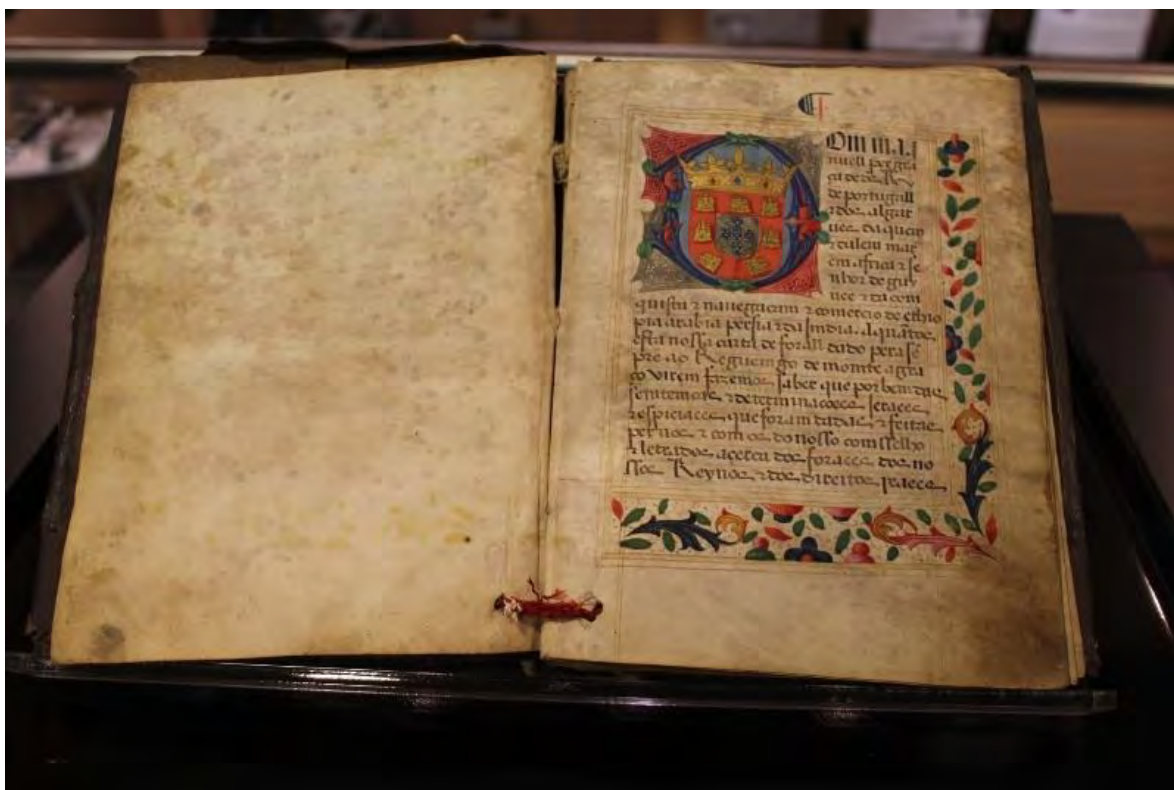 Om ma
nuell per gra
ça de ds. Rey
de portugall
⁊ dos algar
ues da quem
⁊ dalem mar
em africa ⁊ se
nhor de guy
nee ⁊ da com
quista ⁊ nauegaçam ⁊ comercio de ethio
pia arabia persia ⁊ da india. A quātos
esta nossa carta de forall dado pera sē
pre ao Reguengo de momte agra
ço virem fazemos saber que por bem das
semtemças ⁊ determinaçoees jeraees
⁊ espiciaees que foram dadas ⁊ feitas
per nos ⁊ com os do nosso comsselho
⁊ letrados açerca dos foraees dos no
ssos Reynos ⁊ dos direitos reaees